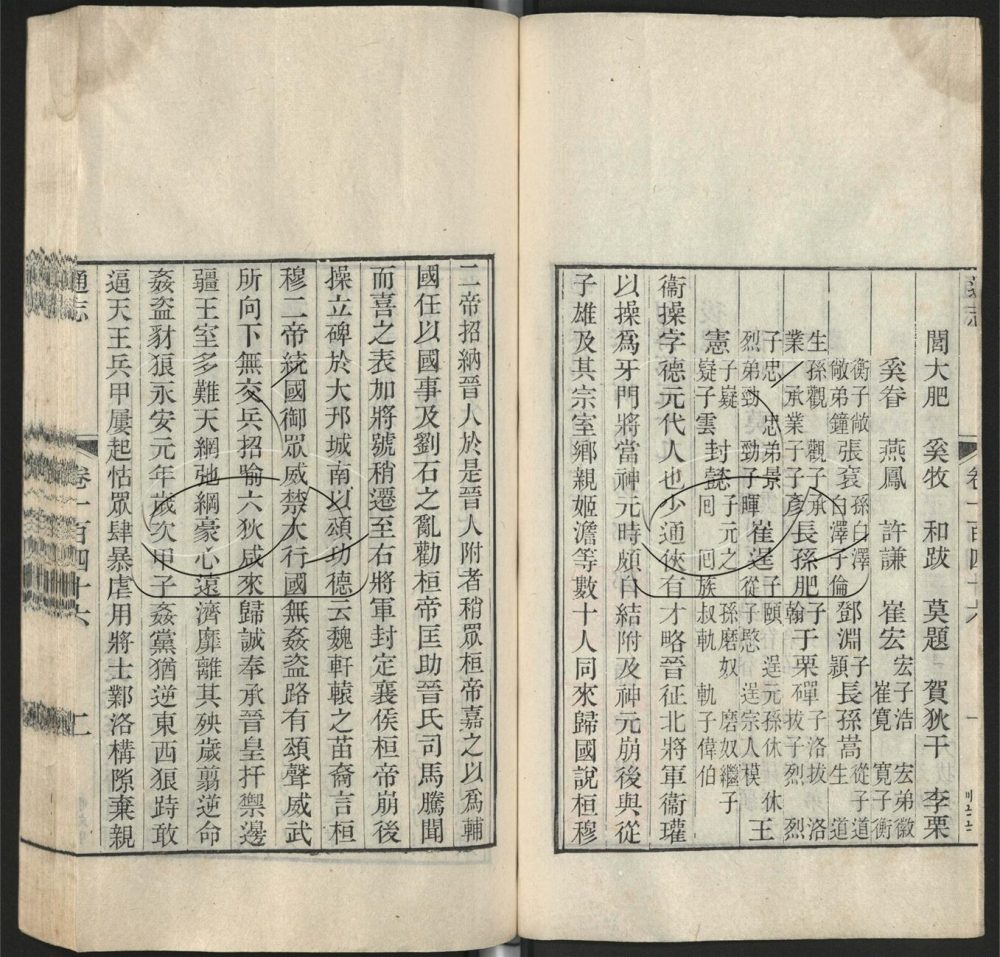 通志 卷一百四十六 一
閭大肥 奚牧 和跋 莫題 賀狄干 李栗
奚眷 燕鳳 許謙 崔宏 宏子浩 宏弟徽 崔寬 寬子衡
衡子敞 敞弟鐘 張袞 孫白澤 白澤子倫 鄧淵 子穎 長孫嵩 從子道生 道
生孫觀 觀子承業 承業子子彥 長孫肥 子翰 于栗磾 子洛拔 洛拔子烈 烈
子忠 忠弟景 烈弟勁 勁子暉 崔逞 子頤 逞元孫休 休子㥄 逞宗人模 王
憲 子嶷 嶷子雲 封懿 子元之 孫磨奴 磨奴繼子囘 囘族叔軌 軌子偉伯
衞操字德元代人也少通俠有才略晉征北將軍衞瓘
以操爲牙門將當神元時頗自結附及神元崩後與從
子雄及其宗室鄉親姬澹等數十人同來歸國說桓穆
二帝招納晉人於是晉人附者稍眾桓帝嘉之以爲輔
國任以國事及劉石之亂勸桓帝匡助晉氏司馬騰聞
而喜之表加將號稍遷至右將軍封定襄侯桓帝崩後
操立碑於大邗城南以頌功德云魏軒轅之苗裔言桓
穆二帝統國御眾威禁大行國無姦盜路有頌聲威武
所向下無交兵招喻六狄咸來歸誠奉承晉皇扞禦邊
疆王室多難天網弛綱豪心遠濟靡離其殃歲翦逆命
姦盜豺狼永安元年歲次甲子姦黨猶逆東西狼跱敢
逼天王兵甲屢起怙眾肆暴虐用將士鄴洛構隙棄親
通志 卷一百四十六 二